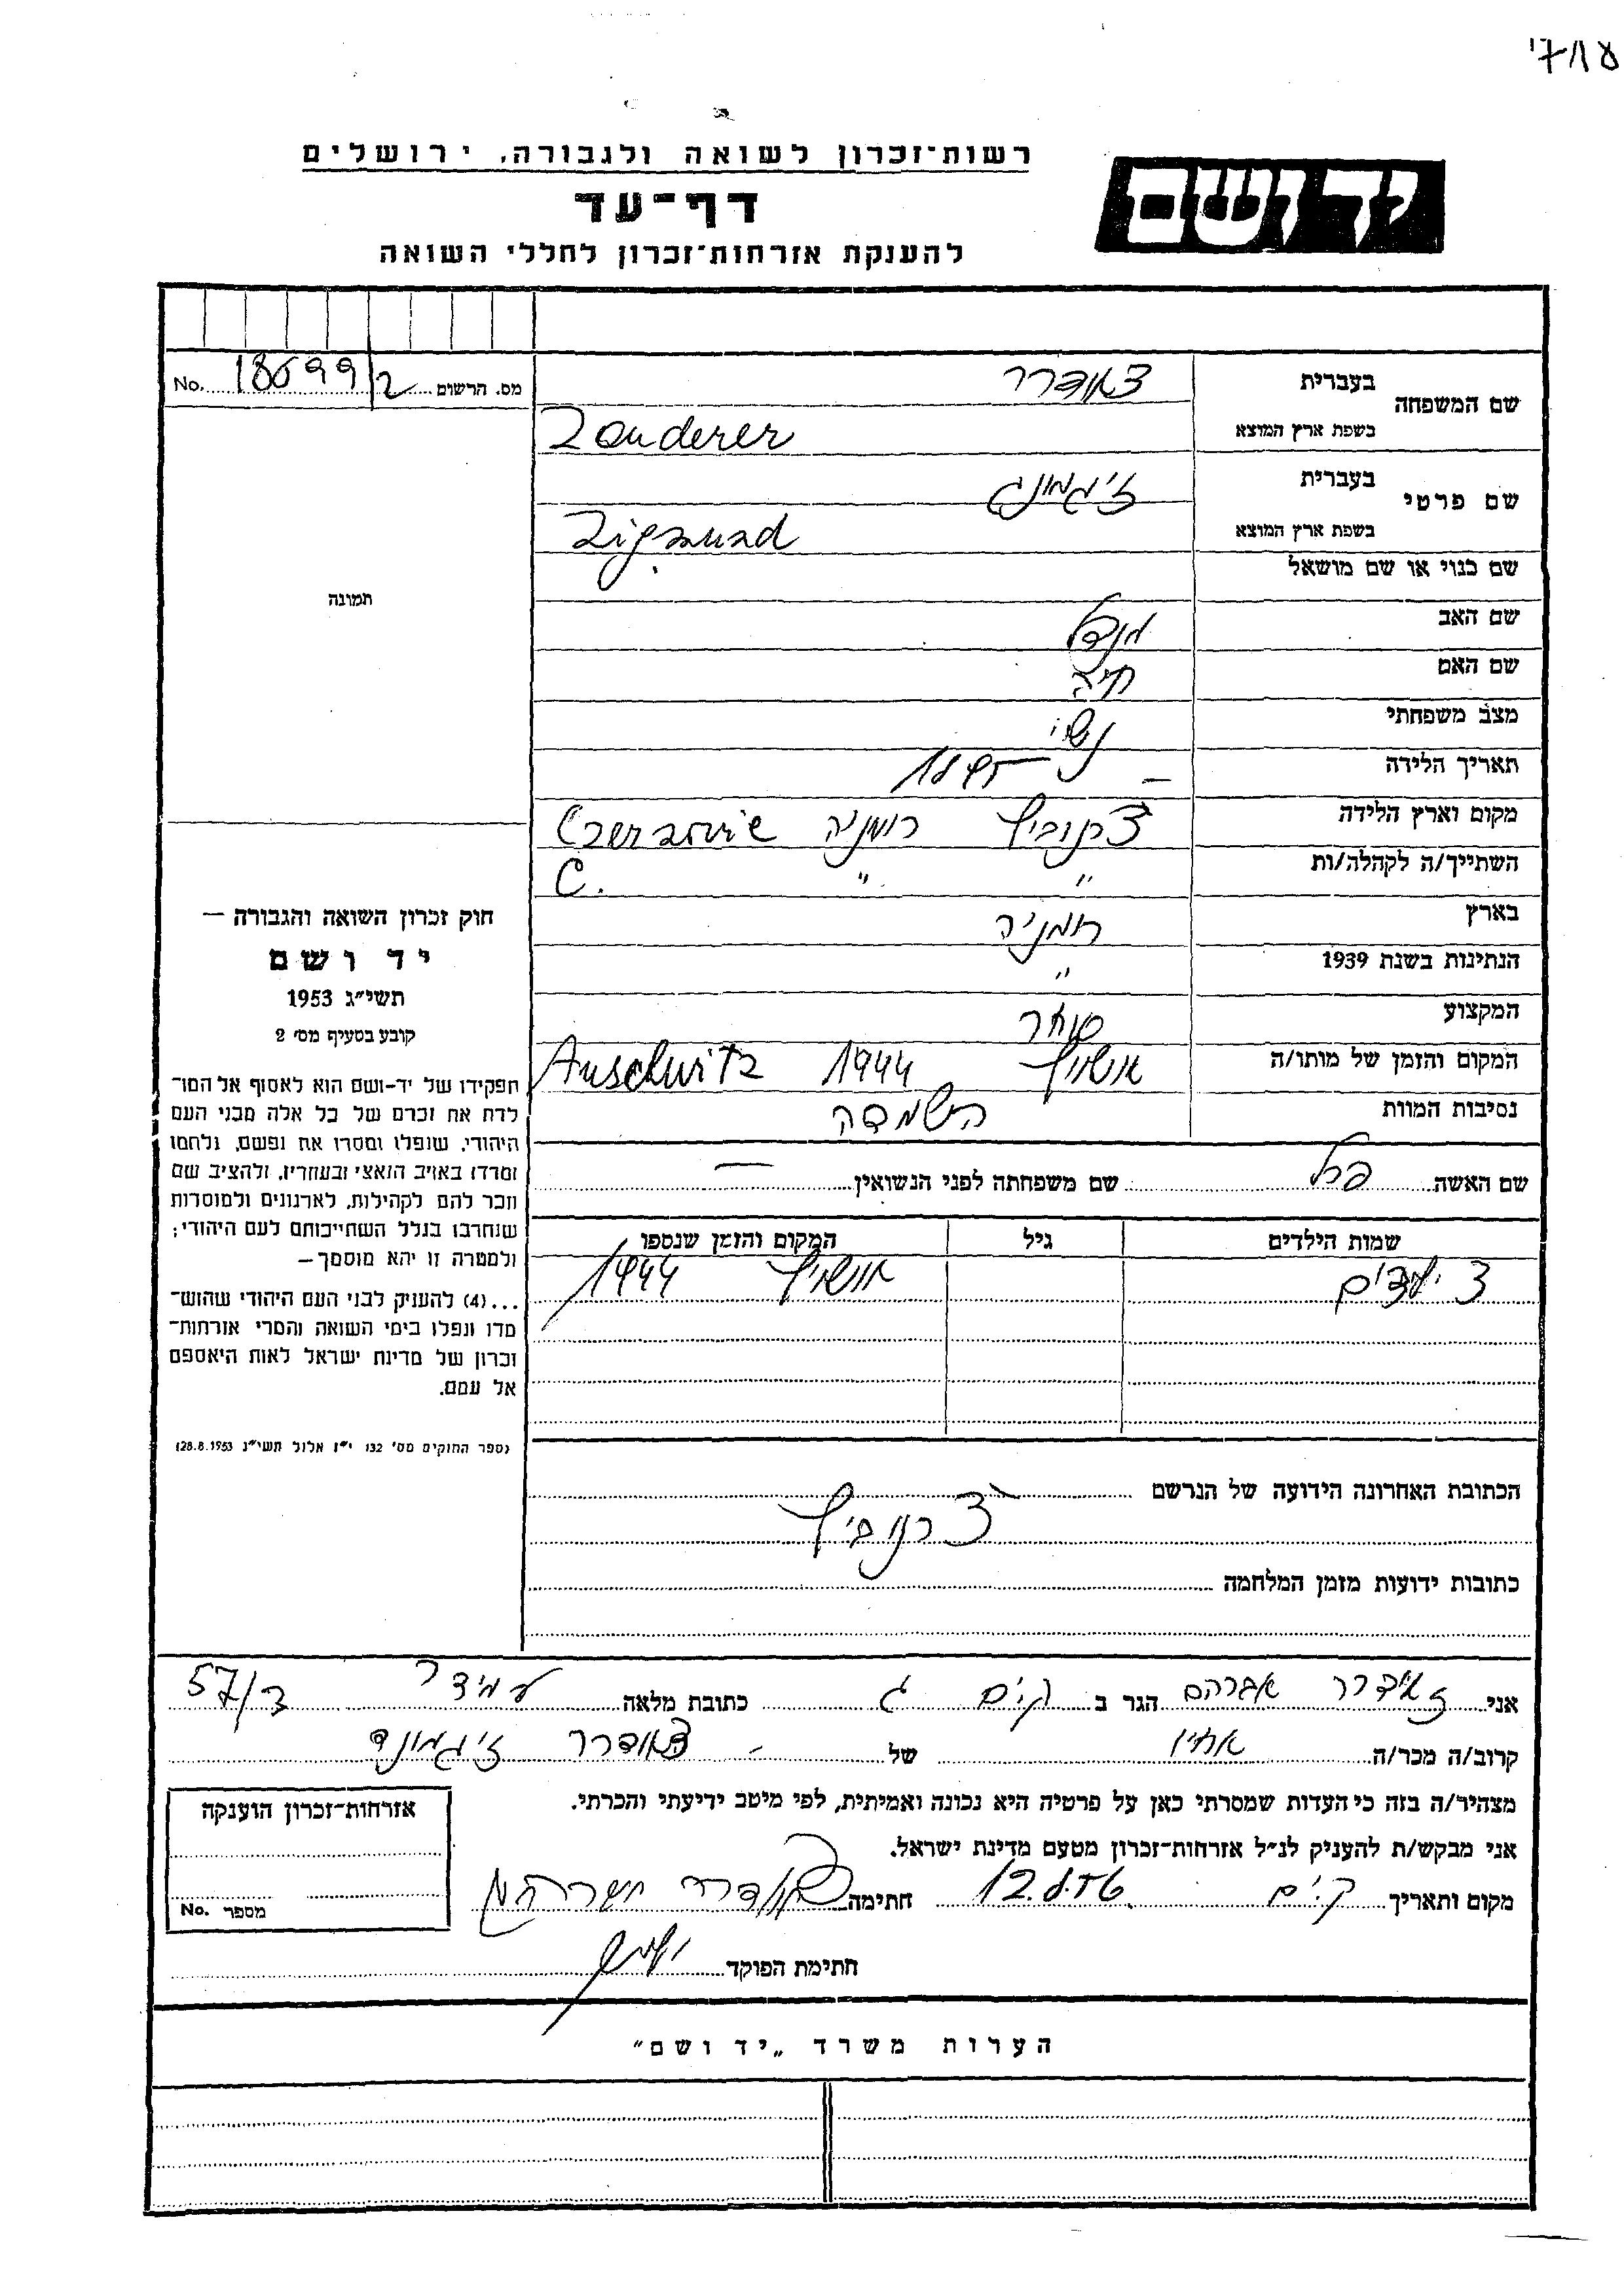 רשות־זכרון לשואה ולגבורה, ירושלים
יד ושם
דף־עד
להענקת אזרחות־זכרון לחללי השואה
מס. הרשום 186992 No.
שם המשפחה
בעברית צאודרר
בשפת ארץ המוצא Zauderer
שם פרטי
בעברית זיגמונד
בשפת ארץ המוצא Zigmund
שם כנוי או שם מושאל
שם האב מנדל
שם האם חיה
מצב משפחתי נשוי
תאריך הלידה – 1895
מקום וארץ הלידה צרנוביץ רומניה Czernovic
השתייך/ה לקהלה/ות " " C.
בארץ רומניה
הנתינות בשנת 1939 "
המקצוע סוחר
המקום והזמן של מותו/ה אושויץ 1944 Auschwitz
נסיבות המוות השמדה
שם האשה פרל שם משפחתה לפני הנשואין —
שמות הילדים גיל המקום והזמן שנספו
3 ילדים אושויץ 1944
הכתובת האחרונה הידועה של הנרשם
צרנוביץ
כתובות ידועות מזמן המלחמה
תמונה
חוק זכרון השואה והגבורה —
יד ושם
תשי״ג 1953
קובע בסעיף מס׳ 2
תפקידו של יד־ושם הוא לאסוף אל המו־
לדת את זכרם של כל אלה מבני העם
היהודי, שנפלו ומסרו את נפשם, נלחמו
ומרדו באויב הנאצי ובעוזריו, ולהציב שם
וזכר להם לקהילות, לארגונים ולמוסדות
שנחרבו בגלל השתייכותם לעם היהודי;
ולמטרה זו יהא מוסמך—
...(4) להעניק לבני העם היהודי שהוש־
מדו ונפלו בימי השואה והמרי אזרחות־
זכרון של מדינת ישראל לאות היאספם
אל עמם.
(ספר החוקים מס׳ 132 י״ז אלול תשי״ג 28.8.1953)
אני זאידרר אברהם הגר ב ק. ים ג כתובת מלאה עמידר 57/ב
קרוב/ה מכר/ה אחיו של צאודרר זיגמונד
מצהיר/ה בזה כי העדות שמסרתי כאן על פרטיה היא נכונה ואמיתית, לפי מיטב ידיעתי והכרתי.
אני מבקש/ת להעניק לנ״ל אזרחות־זכרון מטעם מדינת ישראל.
מקום ותאריך ק. ים 12.8.56 חתימה
חתימת הפוקד
אזרחות־זכרון הוענקה
מספר No.
הערות משרד „יד ושם״